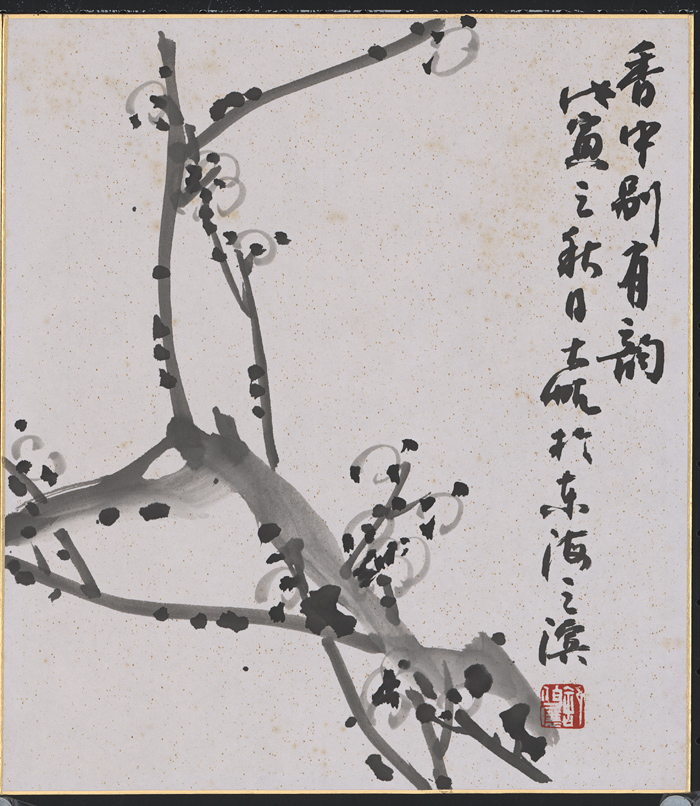 香中别有韵
戊寅之秋日士帆於东海之滨